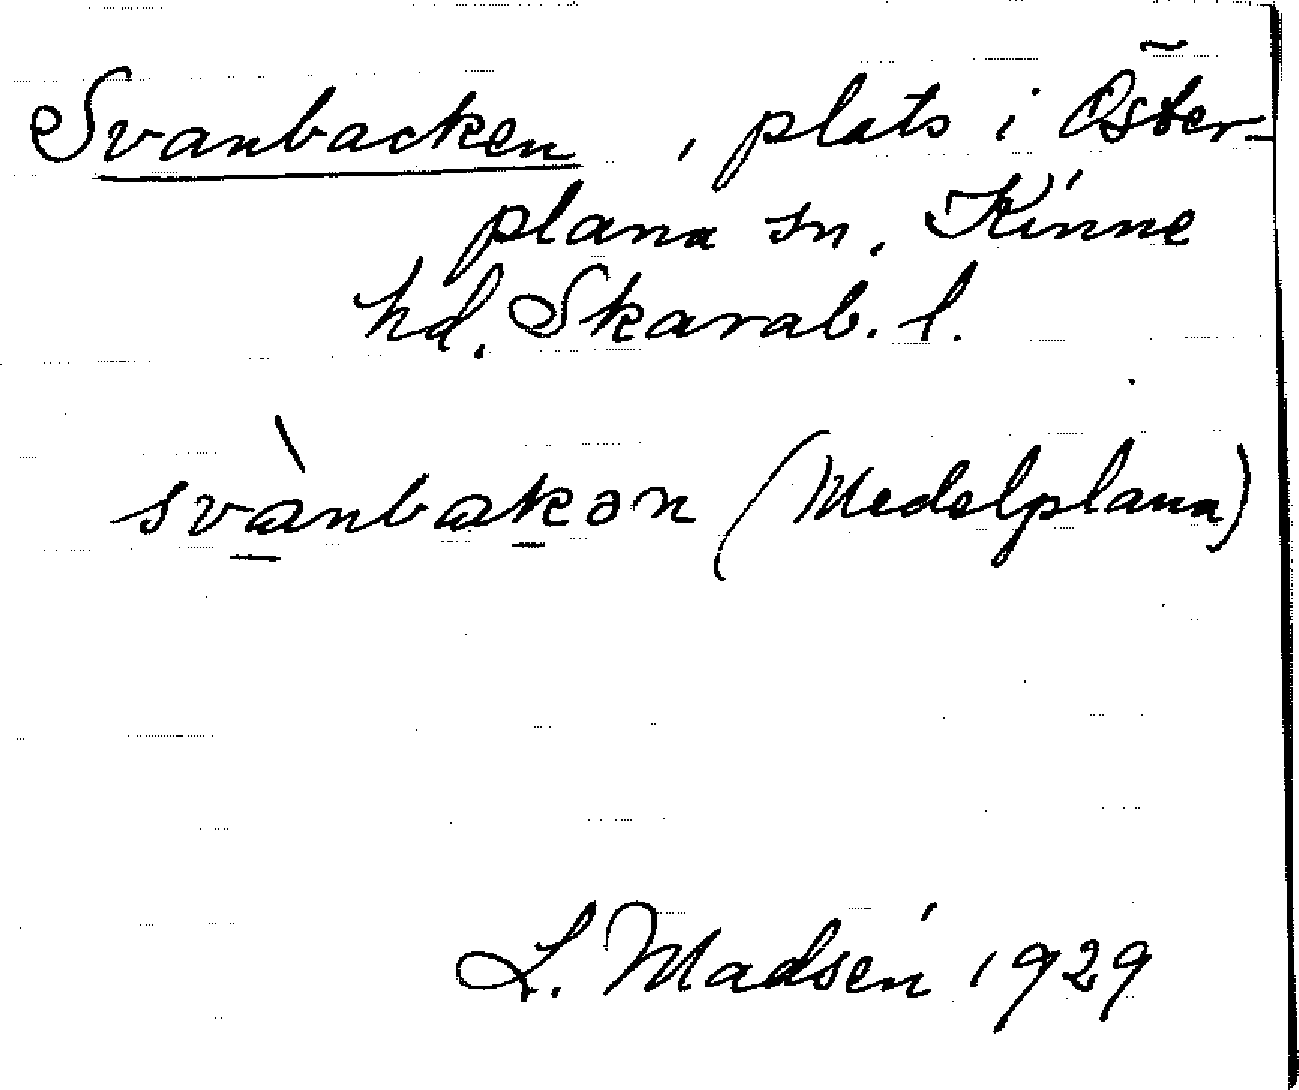 Svanbacken, plats i Öster-
plana sn, Kinne
hd. Skarab. l.
svànbakən (Medelplana)
L. Madsén 1929